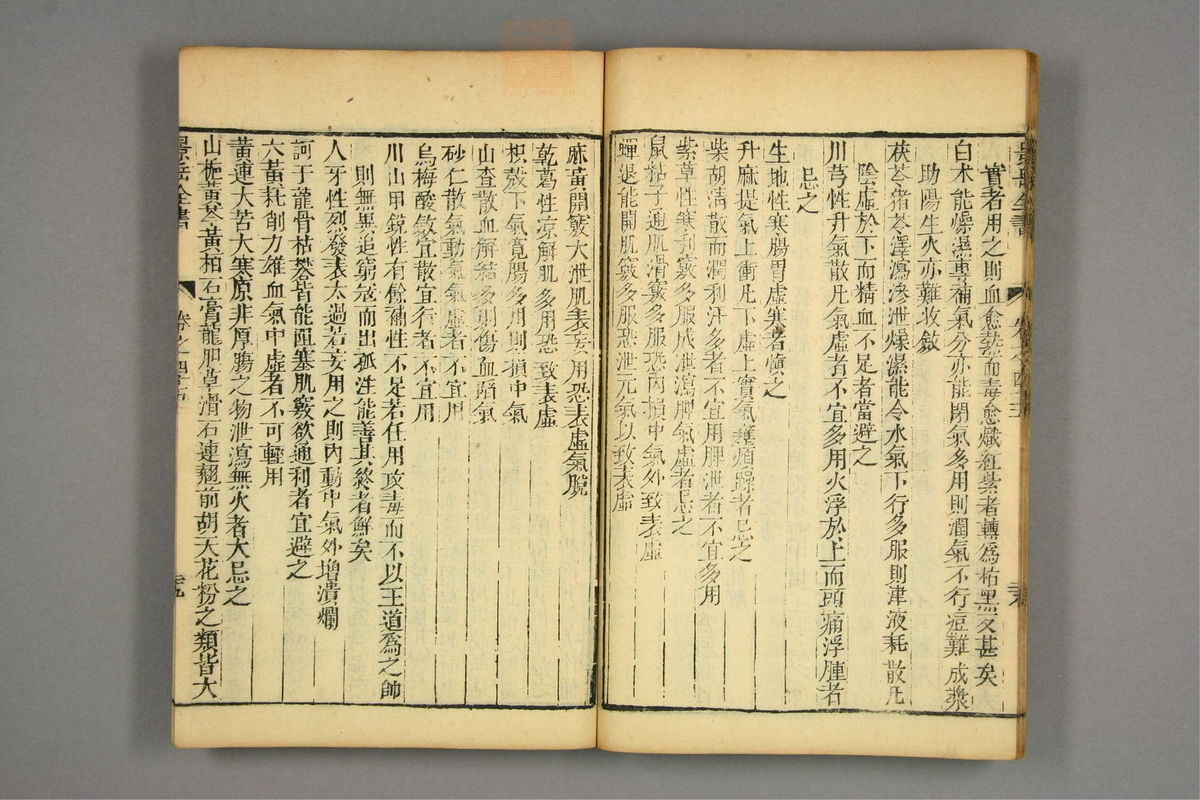 景岳全書
卷之四十五
實者用之則血愈熱而毒愈熾紅紫者轉為枯黑又甚矣
白术能燥濕專補氣分亦能閉氣多用則潤氣不行痘難成漿
助陽生火亦難收斂
茯苓猪苓澤瀉滲泄燥濕能令水氣下行多服則津液耗散凡
陰虛於下而精血不足者當避之
川芎性升氣散凡氣虛者不宜多用火浮於上而頭痛浮腫者
忌之
生地性寒腸胃虛寒者慎之
升麻提氣上衝凡下虛上實氣壅煩躁者忌之
柴胡清散而潤利汗多者不宜用脾泄者不宜多用
紫草性寒利竅多服成泄瀉脾氣虛者忌之
鼠粘子通肌滑竅多服恐內損中氣外致表虛
蟬退能開肌竅多服恐泄元氣以致表虛
麻黃開竅大泄肌表妄用恐表虛氣脫
乾葛性凉解肌多用恐致表虛
枳殼下氣寬腸多用則損中氣
山查散血解結多則傷血陷氣
砂仁散氣動氣氣虛者不宜用
烏梅酸斂宜散宜行者不宜用
川山甲銳性有餘補性不足若任用攻毒而不以王道為之師
則無異追窮宼而出孤注能善其終者鮮矣
人牙性烈發表太過若妄用之則內動中氣外增潰爛
訶子龍骨枯礬皆能阻塞肌竅欲通利者宜避之
大黃耗削力雄血氣中虛者不可輕用
黃連大苦大寒原非厚腸之物泄瀉無火者大忌之
山梔黃芩黃柏石膏龍胆草滑石連翹前胡天花粉之類皆大
景岳全書
卷之四十五